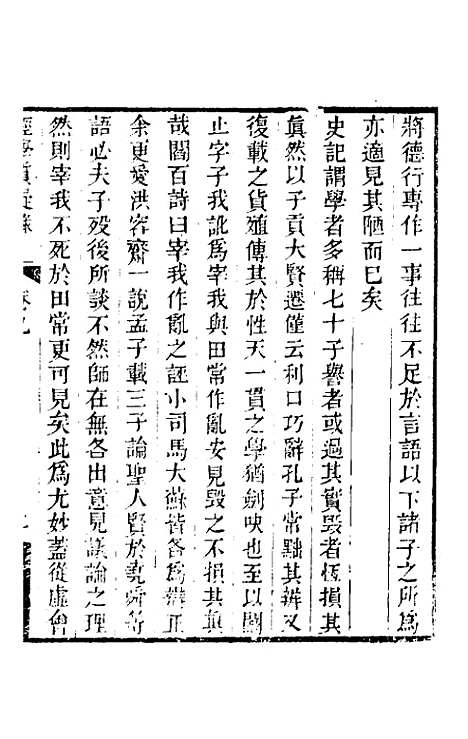 將德行專作一事往往不足於言語以下諸子之所爲
亦適見其陋而已矣
史記謂學者多稱七十子譽者或過其實毀者恆損其
眞然以子貢大賢遷僅云利口巧辭孔子常黜其辨又
復載之貨殖傳其於性天一貫之學猶劍吷也至以闞
止字子我訛爲宰我與田常作亂安見毀之不損其眞
哉閻百詩曰宰我作亂之誣小司馬大蘇皆各爲辨正
余更愛洪容齋一說孟子載三子論聖人賢於堯舜等
語必夫子歿後所談不然師在無各出意見議論之理
然則宰我不死於田常更可見矣此爲尤妙蓋從虛會
經學質疑錄 卷九